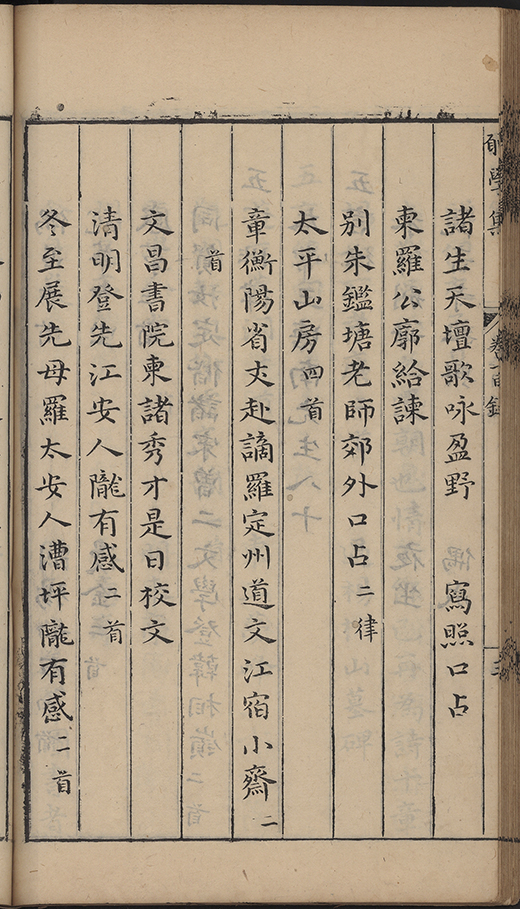 願學集 卷首 目錄 三
諸生天壇歌咏盈野 寫照口占
柬羅公廓給諫
別朱鑑塘老師郊外口占二律
太平山房四首
章衡陽省丈赴謫羅定州道文江宿小齋二
首
文昌書院柬諸秀才是日校文
清明登先江安人隴有感二首
冬至展先母羅太安人漕坪隴有感二首